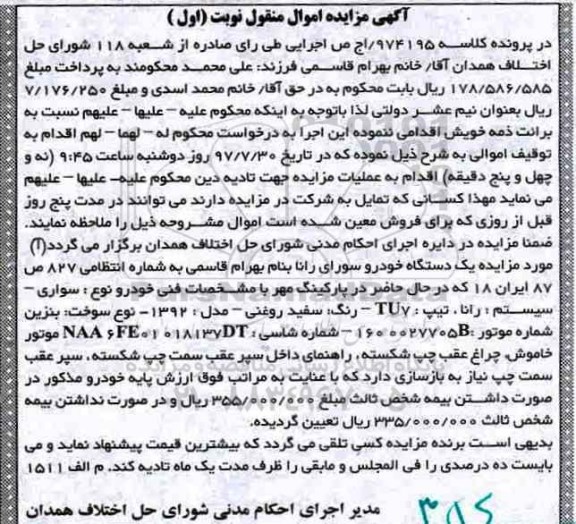 آگهی مزایده اموال منقول نوبت (اول )
در پرونده کلاسه ۹۷۴۱۹۵/اج ص اجرایی طی رای صادره از شعبه ۱۱۸ شورای حل
اختلاف همدان آقا/ خانم بهرام قاسمی فرزند: علی محمد محکومند به پرداخت مبلغ
۱۷۸/۵۸۶/۵۸۵ ریال بابت محکوم به در حق آقا/ خانم محمد اسدی و مبلغ ۷/۱۷۶/۲۵۰
ریال بعنوان نیم عشر دولتی لذا باتوجه به اینکه محکوم علیه – علیها – علیهم نسبت به
برائت ذمه خویش اقدامی ننموده این اجرا به درخواست محکوم له – لهما – لهم اقدام به
توقیف اموالی به شرح ذیل نموده که در تاریخ ۹۷/۷/۳۰ روز دوشنبه ساعت ۹:۴۵ (نه و
چهل و پنج دقیقه) اقدام به عملیات مزایده جهت تادیه دین محکوم علیه– علیها – علیهم
می نماید مهذا کسانی که تمایل به شرکت در مزایده دارند می توانند در مدت پنج روز
قبل از روزی که برای فروش معین شده است اموال مشروحه ذیل را ملاحظه نمایند.
ضمنا مزایده در دایره اجرای احکام مدنی شورای حل اختلاف همدان برگزار می گردد(آ)
مورد مزایده یک دستگاه خودرو سورای رانا بنام بهرام قاسمی به شماره انتظامی ۸۲۷ ص
۸۷ ایران ۱۸ که در حال حاضر در پارکینگ مهر با مشخصات فنی خودرو نوع : سواری –
سیستم : رانا ، تیپ : TU۷ – رنگ: سفید روغنی – مدل : ۱۳۹۲- نوع سوخت: بنزین
شماره موتور :۱۶۰۰۰۲۷۷۰۵B – شماره شاسی : NAA ۶FE۰۱۰۱۸۱۳۷DT موتور
خاموش، چراغ عقب چپ شکسته ، راهنمای داخل سپر عقب سمت چپ شکسته ، سپر عقب
سمت چپ نیاز به بازسازی دارد که با عنایت به مراتب فوق ارزش پایه خودرو مذکور در
صورت داشتن بیمه شخص ثالث مبلغ ۳۵۵/۰۰۰/۰۰۰ ریال و در صورت نداشتن بیمه
شخص ثالث ۳۳۵/۰۰۰/۰۰۰ ریال تعیین گردیده.
بدیهی است برنده مزایده کسی تلقی می گردد که بیشترین قیمت پیشنهاد نماید و می
بایست ده درصدی را فی المجلس و مابقی را ظرف مدت یک ماه تادیه کند. م الف ۱۵۱۱
مدیر اجرای احکام مدنی شورای حل اختلاف همدان